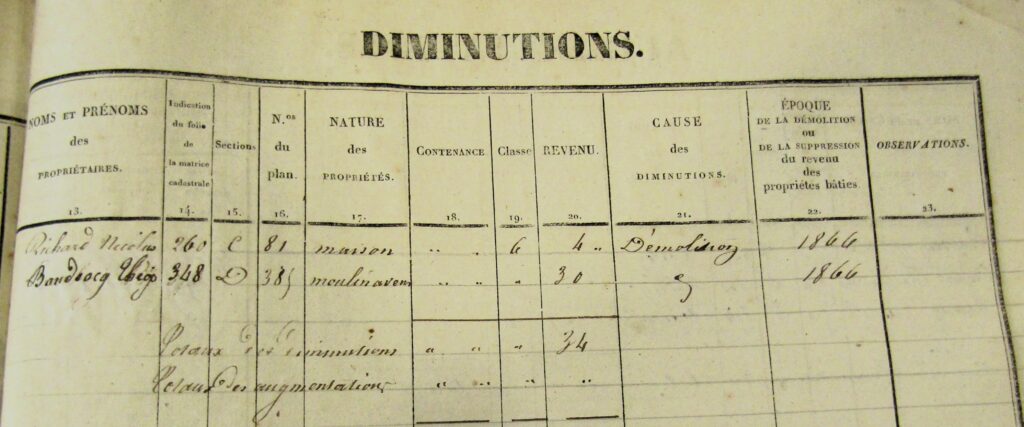 DIMINUTIONS.
NOMS ET PRÉNOMS des PROPRIÉTAIRES. 13.
Indication du folio de la matrice cadastrale 14.
Sections 15.
N.os du plan. 16.
NATURE des PROPRIÉTÉS. 17.
CONTENANCE. 18.
Classe 19.
REVENU. 20.
CAUSE des DIMINUTIONS. 21.
ÉPOQUE DE LA DÉMOLITION ou DE LA SUPPRESSION du revenu des propriétes bâties. 22.
OBSERVATIONS. 23.
Richard Nicolas 260 C 81 maison " " 6 4 " Démolition 1866
348 D 385 moulin à vent " " " 30 1866
Totaux des diminutions " " " 34
Totaux des augmentations " " " "